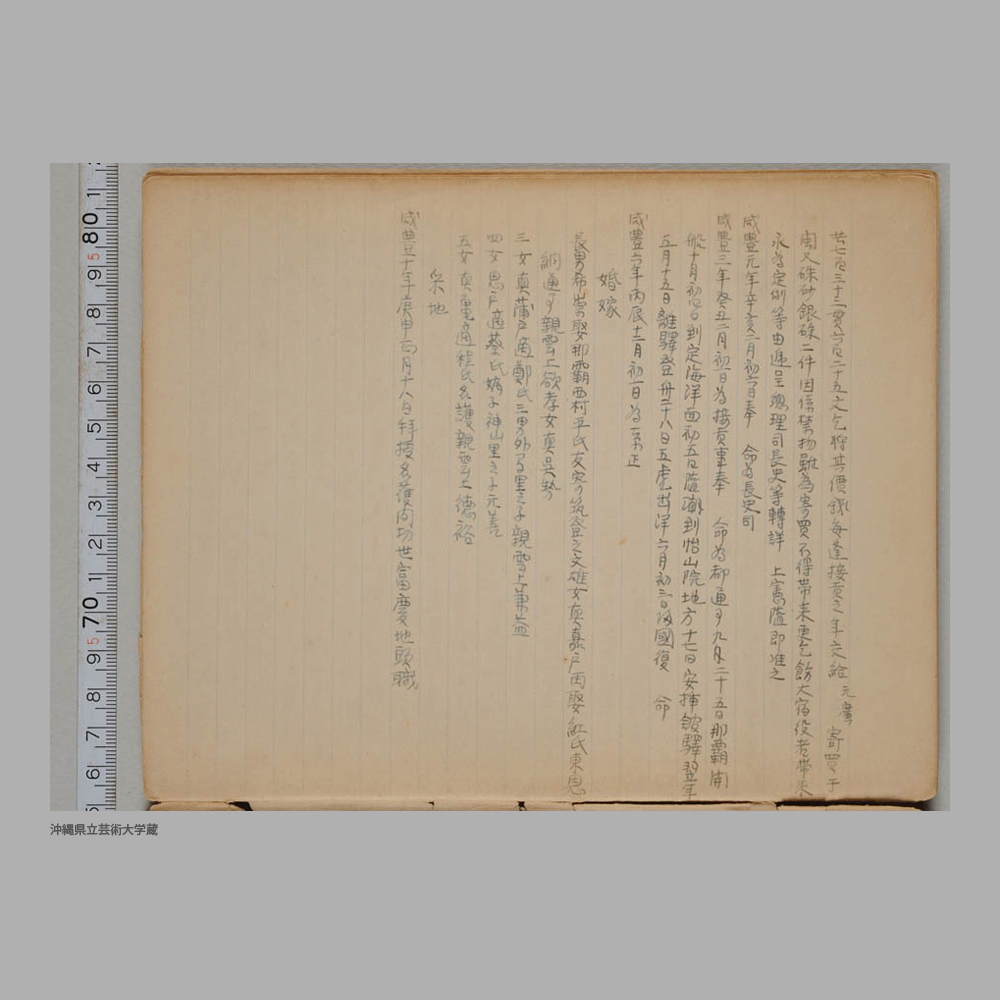 廿七百三十二貫六百二十五文乞將其價錢每逢接貢之年交給元廣寄買于
閩又硃砂銀硃二件因係禁物雖為寄買不得帶来更乞飭大宿役者帶来
永為定例等由逓呈 總理司長史等轉詳 上憲隨即准之
咸豊元年辛亥二月初六日奉 命為長史司
咸豊三年癸丑二月初一日為接貢事奉 命為都通事九月二十五日那覇開
船十月初四日到定海洋面初五日隨潮到怡山院地方十七日安挿館驛翌年
五月十五日離驛登舟二十八日五虎出洋六月初三日復國復 命
咸豊六年丙辰十二月初一日為
婚嫁
長男希 娶那覇西村平氏友寄筑登之文雄女真嘉戸再娶紅氏東恩
納通事親雲上欲孝女真呉勢
三女真蒲戸適鄭氏三男外間里之子親雲上兼益
四女思戸適蔡氏嫡子神山里之子元善
五女真亀適程氏名護親雲上德裕
采地
咸豊十年庚申四月十八日拜授名護间切世富慶地頭職
80
9
8
7
6
5
4
3
2
1
70
9
8
7
6
沖縄県立芸術大学蔵